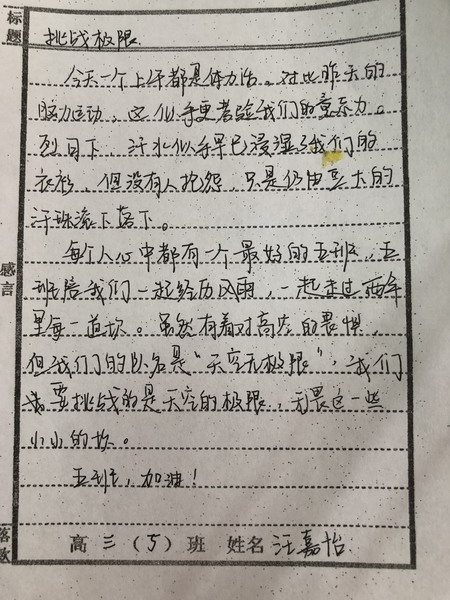 标题
挑战极限
今天一个上午都是体力活。对比昨天的
脑力运动，这似乎更考验我们的意志力。
烈日下，汗水似乎早已浸湿了我们的
衣衫，但没有人抱怨，只是仍由豆大的
汗珠滚下落下。
每个人心中都有一个最好的五班，五
班陪我们一起经历风雨，一起走过两年
里每一道坎。虽然有着对高度的畏惧，
但我们的队名是“天空无极限”，我们
要挑战的是天空的极限，无畏这一些
小小的坎。
五班，加油！
感言
落款
高三（5）班 姓名 汪嘉怡